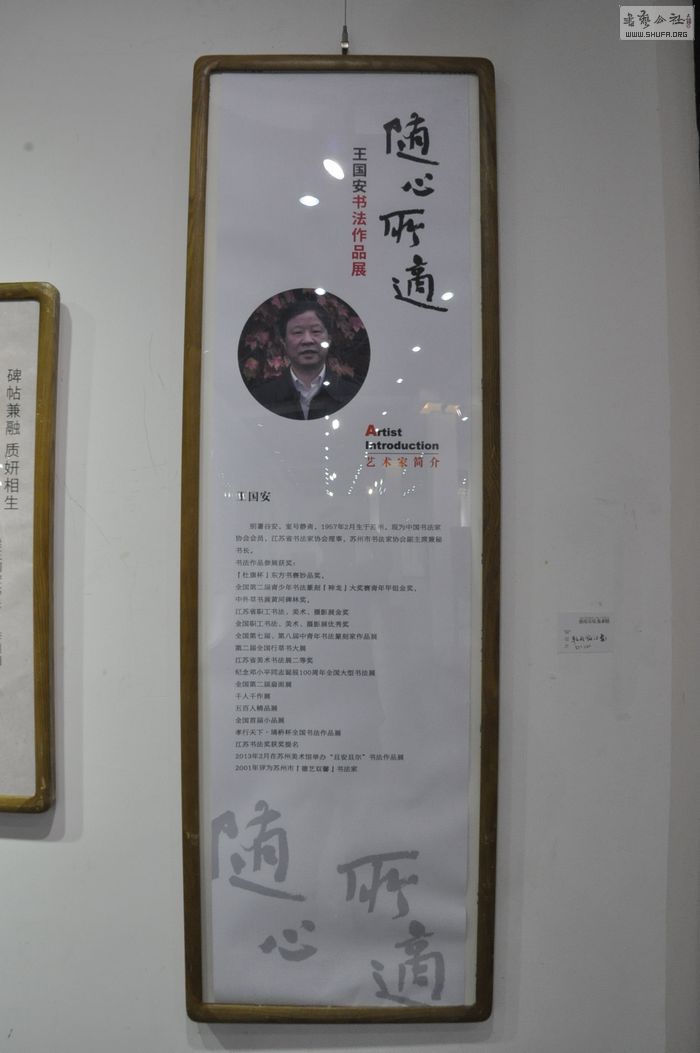 书艺公社
WWW.SHUFA.ORG
随心所適
王国安书法作品展
Artist
Introduction
艺术家简介
王国安
别署谷安，室号静斋，1957年2月生于苏州，现为中国书法家
协会会员，江苏省书法家协会理事，苏州市书法家协会副主席兼秘
书长。
书法作品参展获奖：
「杜康杯」东方书赛妙品奖，
全国第二届青少年书法篆刻「神龙」大奖赛青年甲组金奖，
中外草书展黄河碑林奖，
江苏省职工书法、美术、摄影展金奖
全国职工书法、美术、摄影展优秀奖
全国第七届、第八届中青年书法篆刻家作品展
第二届全国行草书大展
江苏省美术书法展二等奖
纪念邓小平同志诞辰100周年全国大型书法展
全国第二届扇面展
千人千作展
五百人精品展
全国首届小品展
孝行天下·埇桥杯全国书法作品展
江苏书法奖获奖提名
2013年2月在苏州美术馆举办“且安且尔”书法作品展
2001年评为苏州市「德艺双馨」书法家
随心所適
碑帖兼融 质妍相生